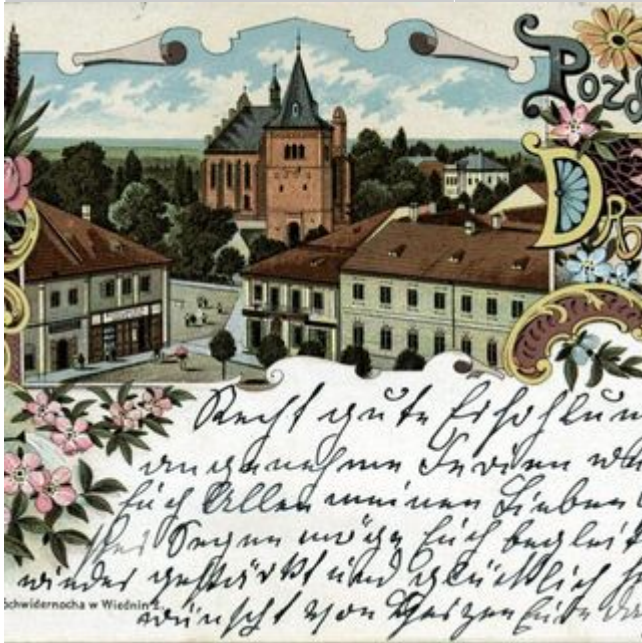 Pozd
Dr
Recht gute Erholun
angenehme Ferien
Euch Allen meinen Lieben
Segen möge Euch begleit
wieder gestärkt und glücklich
wünscht von Herzen Eure
Schwidernocha w Wiedniu 2.